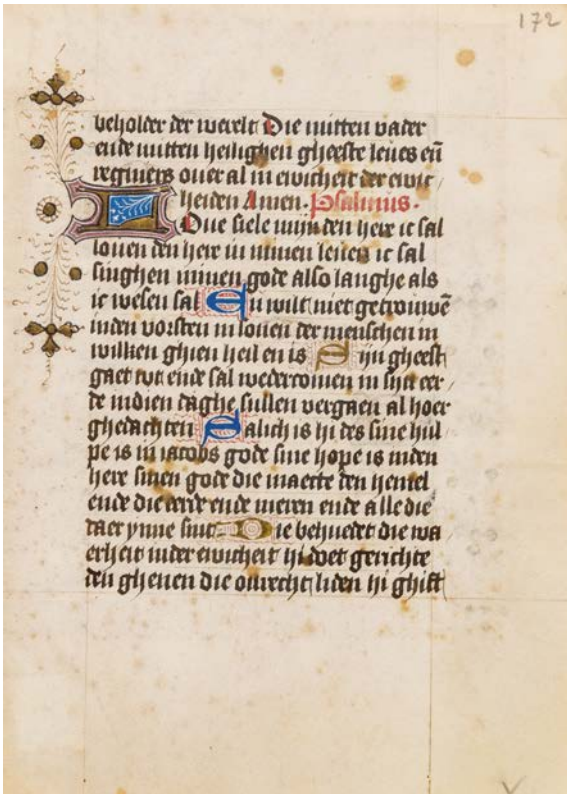 172
beholder der werelt Die mitten vader
ende mitten heilighen gheeste leues eñ
regniers ouer al in ewicheit der ewic
heiden Amen. Psalmus.
Oue siele mijn den here ic sal
louen den here in minen leuen ic sal
singhen minen gode also langhe als
ic wesen sal En wilt niet getrouwē
inden vorsten in sonen der menschen in
wilken ghien heil en is Sijn gheest
gaet wt ende sal wederkomen in sijn eer
de in dien daghe sullen vergaen al hoer
ghedachten Salich is hi des sine hul
pe is in iacobs gode sine hope is inden
here sinen gode die maecte den hemel
ende die eerde ende meren ende alle die
daer ynne sint Die behuedet die wa
erheit inder ewicheit hi doet gerichte
den ghenen die onrecht liden hi ghift